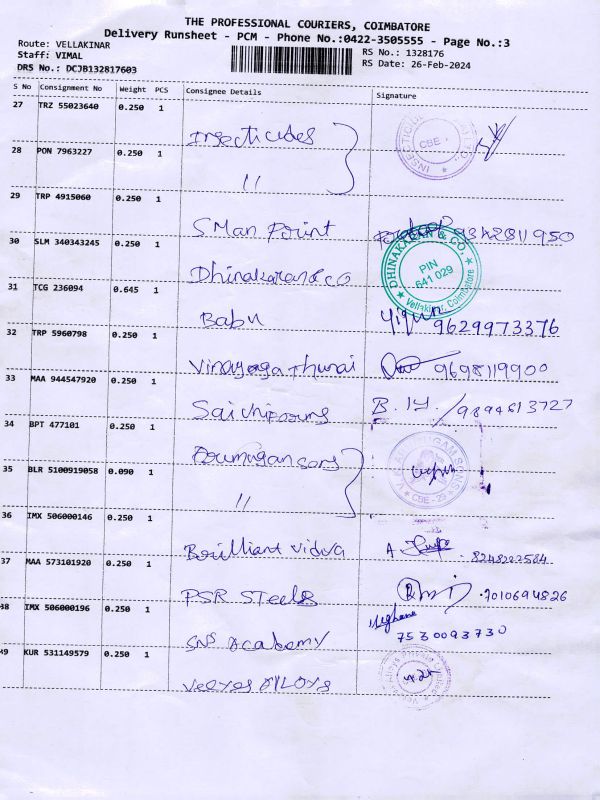 THE PROFESSIONAL COURIERS, COIMBATORE
Delivery Runsheet - PCM - Phone No.:0422-3505555 - Page No.:3
Route: VELLAKINAR
Staff: VIMAL
DRS No.: DCJB132817603
RS No.: 1328176
RS Date: 26-Feb-2024
S No Consignment No Weight PCS Consignee Details Signature
27 TRZ 55023640 0.250 1
Insecticides
INSECTICIDES CBE
28 PON 7963227 0.250 1
"
29 TRP 4915060 0.250 1
SMan Point 9342811950
30 SLM 340343245 0.250 1
Dhinakaran & co
DHINAKARAN & CO.
PIN
641 029
Vellakinar, Coimbatore
31 TCG 236094 0.645 1
Babu 9629973376
32 TRP 5960798 0.250 1
Vinayaga thurai 9698119900
33 MAA 944547920 0.250 1
9894613727
34 BPT 477101 0.250 1
sons
CBE - 29
35 BLR 5100919058 0.090 1
"
36 IMX 506000146 0.250 1
Brilliant vidva 8248222584
37 MAA 573101920 0.250 1
PSR STeels 7010694826
38 IMX 506000196 0.250 1
SNS Academy 7530093730
49 KUR 531149579 0.250 1
ALLOYS